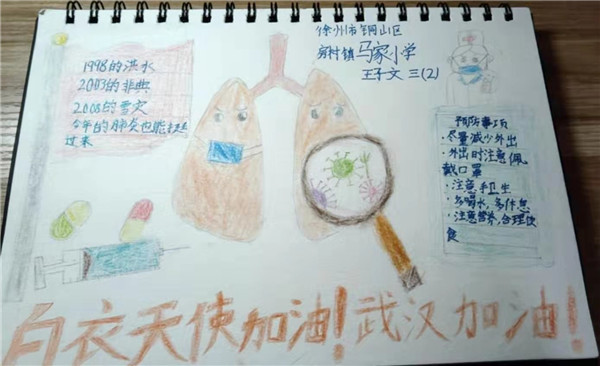 徐州市铜山区
房村镇马家小学
王子文 三(2)
1998的洪水
2003的非典
2008的雪灾
今年的肺炎也能挺
过来
预防事项
·尽量减少外出
·外出时注意佩
戴口罩
·注意手卫生
·多喝水,多休息
·注意营养,合理饮
食
白衣天使加油!武汉加油!